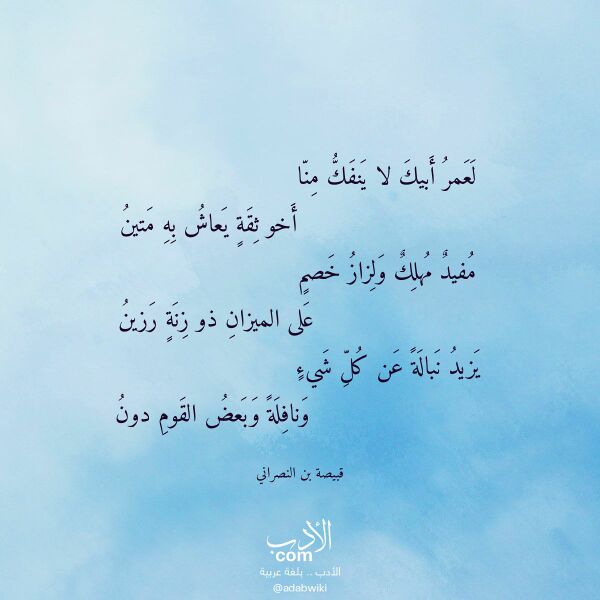 لَعَمرُ أَبيكَ لا يَنفَكُّ مِنّا
أَخو ثِقَةٍ يَعاشُ بِهِ مَتينُ
مُفيدٌ مُهلِكٌ وَلِزازُ خَصمٍ
عَلى الميزانِ ذو زِنَةٍ رَزينُ
يَزيدُ نَبالَةً عَن كُلِّ شَيءٍ
وَنافِلَةً وَبَعضُ القَومِ دونُ
قبيصة بن النصراني
الأدب
com
الأدب .. بلغة عربية
@adabwiki